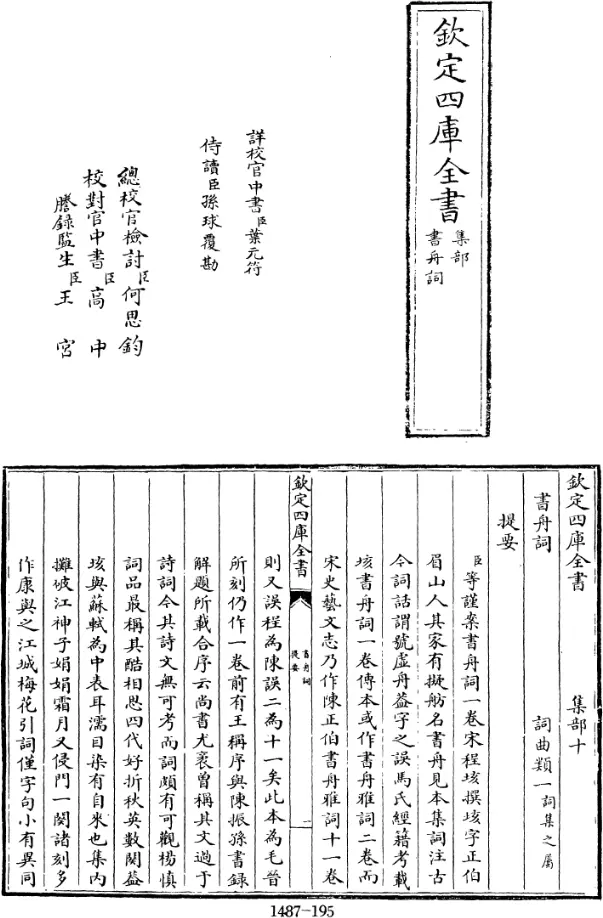 欽定四庫全書
集部
書舟詞
詳校官中書臣葉元符
侍讀臣孫球覆勘
總校官檢討臣何思鈞
校對官中書臣高中
謄錄監生臣王宮
欽定四庫全書
集部十
書舟詞
詞曲類一詞集之屬
提要
臣等謹案書舟詞一卷宋程垓撰垓字正伯
眉山人其家有擬舫名書舟見本集詞注古
今詞話謂號虛舟葢字之誤馬氏經籍考載
垓書舟詞一卷傳本或作書舟雅詞二卷而
宋史藝文志乃作陳正伯書舟雅詞十一卷
欽定四庫全書
書舟詞
提要
一
則又誤程為陳誤二為十一矣此本為毛晉
所刻仍作一卷前有王稱序與陳振孫書録
解題所載合序云尚書尤袤曾稱其文過于
詩詞今其詩文無可考而詞頗有可觀楊慎
詞品最稱其酷相思四代好折秋英數闋葢
垓與蘇軾為中表耳濡目染有自來也集内
攤破江神子娟娟霜月又侵門一闋諸刻多
作康與之江城梅花引詞僅字句小有異同
1487-195